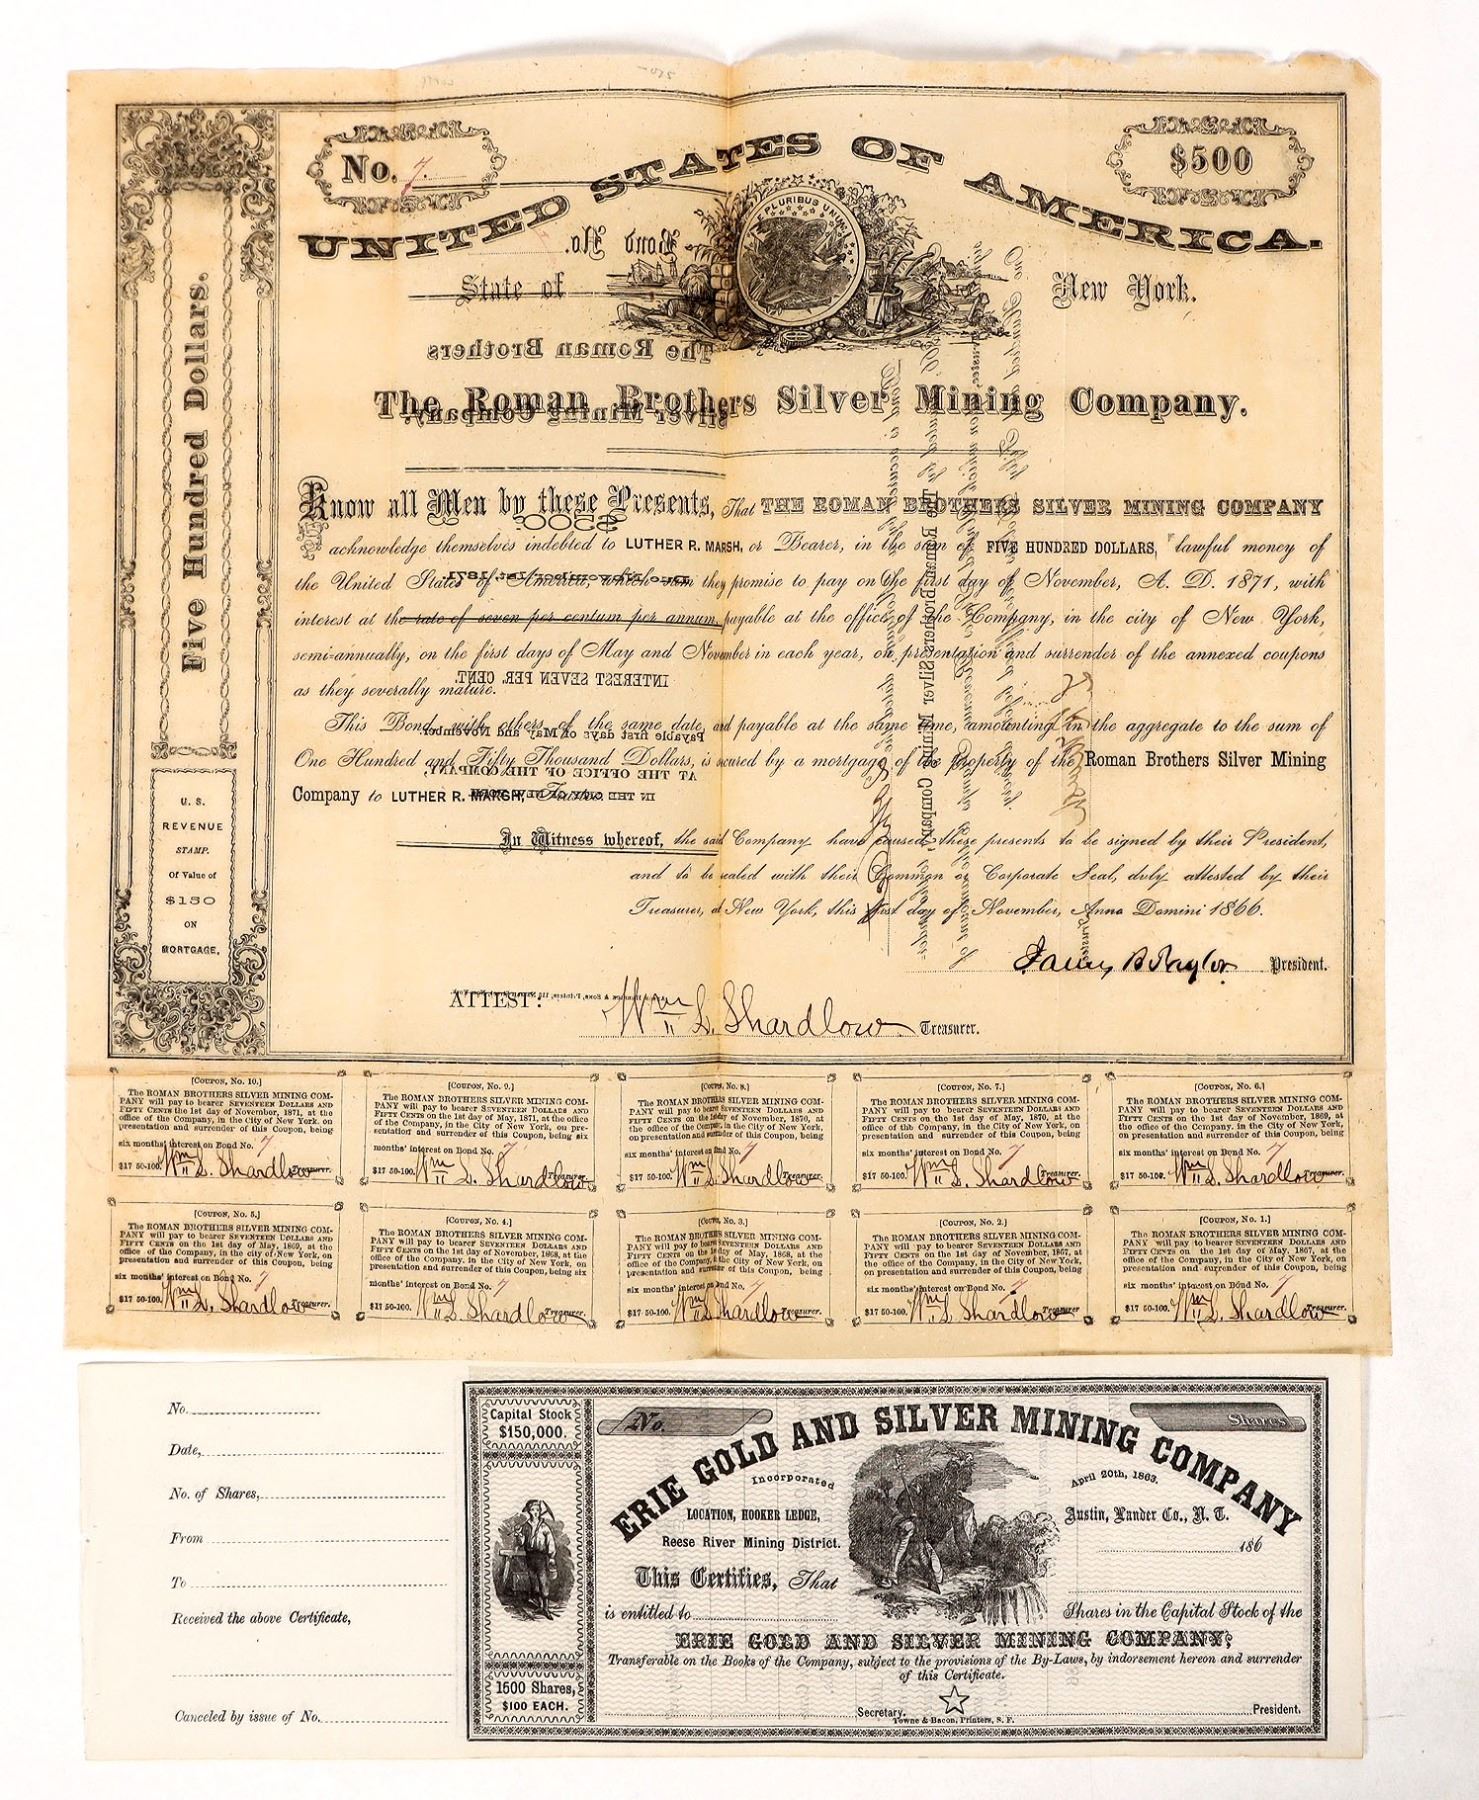 No. 7.
$500
UNITED STATES OF AMERICA.
E PLURIBUS UNUM
Bond No.
State of
New York.
The Roman Brothers
Silver Mining Company.
The Roman Brothers Silver Mining Company.
Five Hundred Dollars.
U. S.
REVENUE
STAMP.
Of Value of
$150
ON
MORTGAGE.
Know all Men by these Presents, That THE ROMAN BROTHERS SILVER MINING COMPANY
$500
acknowledge themselves indebted to LUTHER R. MARSH, or Bearer, in the sum of FIVE HUNDRED DOLLARS, lawful money of
the United States of America, which sum they promise to pay on the first day of November, A. D. 1871, with
interest at the rate of seven per centum per annum, payable at the office of the Company, in the city of New York,
semi-annually, on the first days of May and November in each year, on presentation and surrender of the annexed coupons
as they severally mature.
INTEREST SEVEN PER CENT.
This Bond, with others of the same date, and payable at the same time, amounting in the aggregate to the sum of
Payable first days of May and November.
One Hundred and Fifty Thousand Dollars, is secured by a mortgage of the property of the Roman Brothers Silver Mining
AT THE OFFICE OF THE COMPANY,
Company to LUTHER R. MARSH,
IN THE CITY OF NEW YORK
In Witness whereof, the said Company have caused these presents to be signed by their President,
and to be sealed with their Common or Corporate Seal, duly attested by their
Treasurer, at New York, this first day of November, Anno Domini 1866.
The Roman Brothers Silver Mining Company
President.
ATTEST: Wm L. Shardlow Treasurer.
[COUPON, No. 10.]
The ROMAN BROTHERS SILVER MINING COM-
PANY will pay to bearer SEVENTEEN DOLLARS AND
FIFTY CENTS the 1st day of November, 1871, at the
office of the Company, in the City of New York, on
presentation and surrender of this Coupon, being
six months' interest on Bond No. 7
$17 50-100. Wm L. Shardlow Treasurer.
[COUPON, No. 9.]
The ROMAN BROTHERS SILVER MINING COM-
PANY will pay to bearer SEVENTEEN DOLLARS AND
FIFTY CENTS on the 1st day of May, 1871, at the office
of the Company, in the City of New York, on pre-
sentation and surrender of this Coupon, being six
months' interest on Bond No. 7
$17 50-100. Wm L. Shardlow Treasurer.
[COUPON, No. 8.]
The ROMAN BROTHERS SILVER MINING COM-
PANY will pay to bearer SEVENTEEN DOLLARS AND
FIFTY CENTS on the 1st day of November, 1870, at
the office of the Company, in the City of New York,
on presentation and surrender of this Coupon, being
six months' interest on Bond No. 7
$17 50-100. Wm L. Shardlow Treasurer.
[COUPON, No. 7.]
The ROMAN BROTHERS SILVER MINING COM-
PANY will pay to bearer SEVENTEEN DOLLARS AND
FIFTY CENTS on the 1st day of May, 1870, at the
office of the Company, in the City of New York, on
presentation and surrender of this Coupon, being
six months' interest on Bond No. 7
$17 50-100. Wm L. Shardlow Treasurer.
[COUPON, No. 6.]
The ROMAN BROTHERS SILVER MINING COM-
PANY will pay to bearer SEVENTEEN DOLLARS AND
FIFTY CENTS on the 1st day of November, 1869, at
the office of the Company, in the City of New York,
on presentation and surrender of this Coupon, being
six months' interest on Bond No. 7
$17 50-100. Wm L. Shardlow Treasurer.
[COUPON, No. 5.]
The ROMAN BROTHERS SILVER MINING COM-
PANY will pay to bearer SEVENTEEN DOLLARS AND
FIFTY CENTS on the 1st day of May, 1869, at the
office of the Company, in the city of New York, on
presentation and surrender of this Coupon, being
six months' interest on Bond No. 7
$17 50-100. Wm L. Shardlow Treasurer.
[COUPON, No. 4.]
The ROMAN BROTHERS SILVER MINING COM-
PANY will pay to bearer SEVENTEEN DOLLARS AND
FIFTY CENTS on the 1st day of November, 1868, at the
office of the Company, in the City of New York, on
presentation and surrender of this Coupon, being six
months' interest on Bond No. 7
$17 50-100. Wm L. Shardlow Treasurer.
[COUPON, No. 3.]
The ROMAN BROTHERS SILVER MINING COM-
PANY will pay to bearer SEVENTEEN DOLLARS AND
FIFTY CENTS on the 1st day of May, 1868, at the
office of the Company, in the City of New York, on
presentation and surrender of this Coupon, being
six months' interest on Bond No. 7
$17 50-100. Wm L. Shardlow Treasurer.
[COUPON, No. 2.]
The ROMAN BROTHERS SILVER MINING COM-
PANY will pay to bearer SEVENTEEN DOLLARS AND
FIFTY CENTS on the 1st day of November, 1867, at
the office of the Company, in the City of New York,
on presentation and surrender of this Coupon, being
six months' interest on Bond No. 7
$17 50-100. Wm L. Shardlow Treasurer.
[COUPON, No. 1.]
The ROMAN BROTHERS SILVER MINING COM-
PANY will pay to bearer SEVENTEEN DOLLARS AND
FIFTY CENTS on the 1st day of May, 1867, at the
office of the Company, in the City of New York, on
presentation and surrender of this Coupon, being
six months' interest on Bond No. 7
$17 50-100. Wm L. Shardlow Treasurer.
No.
Date,
No. of Shares,
From
To
Received the above Certificate,
Canceled by issue of No.
Capital Stock
$150,000.
1500 Shares,
$100 EACH.
No.
Shares
ERIE GOLD AND SILVER MINING COMPANY
Incorporated
April 20th, 1863.
LOCATION, HOOKER LEDGE,
Austin, Lander Co., N. T.
Reese River Mining District.
186
This Certifies, That
is entitled to
Shares in the Capital Stock of the
ERIE GOLD AND SILVER MINING COMPANY;
Transferable on the Books of the Company, subject to the provisions of the By-Laws, by indorsement hereon and surrender
of this Certificate.
Secretary.
President.
Towne & Bacon, Printers, S. F.